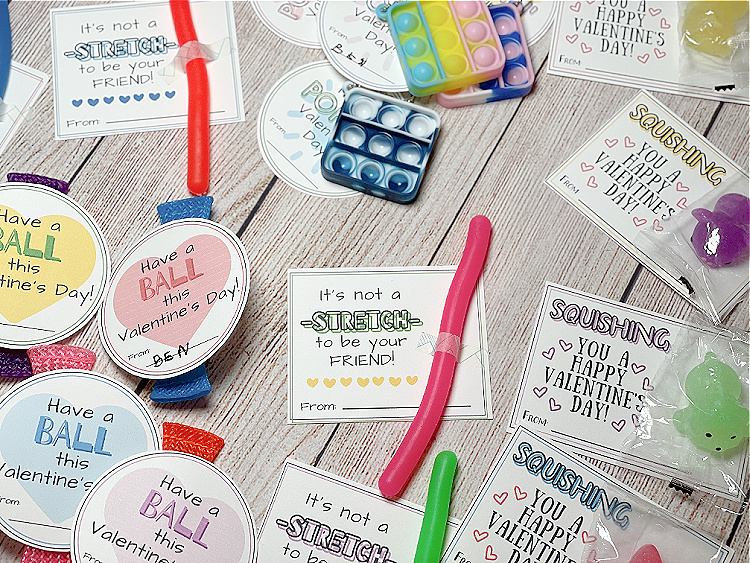 It's not a
-STRETCH-
to be your
FRIEND!
From:
From:
BEN
A
HAPPY
VALENTINE'S
DAY!
From
POP
Valen
Day
From:
SQUISHING
YOU A
HAPPY
VALENTINE'S
DAY!
From
Have a
BALL
this
tine's Day!
Have a
BALL
this
Valentine's Day!
From BEN
It's not a
-STRETCH-
to be your
FRIEND!
From:
SQUISHING
YOU A
HAPPY
VALENTINE'S
DAY!
From
Have a
BALL
this
Valentine's
From
Have a
BALL
this
Valentine's
It's not a
-STRETCH-
to be
SQUISHING
YOU A
HAPPY
VALENTINE
DAY!